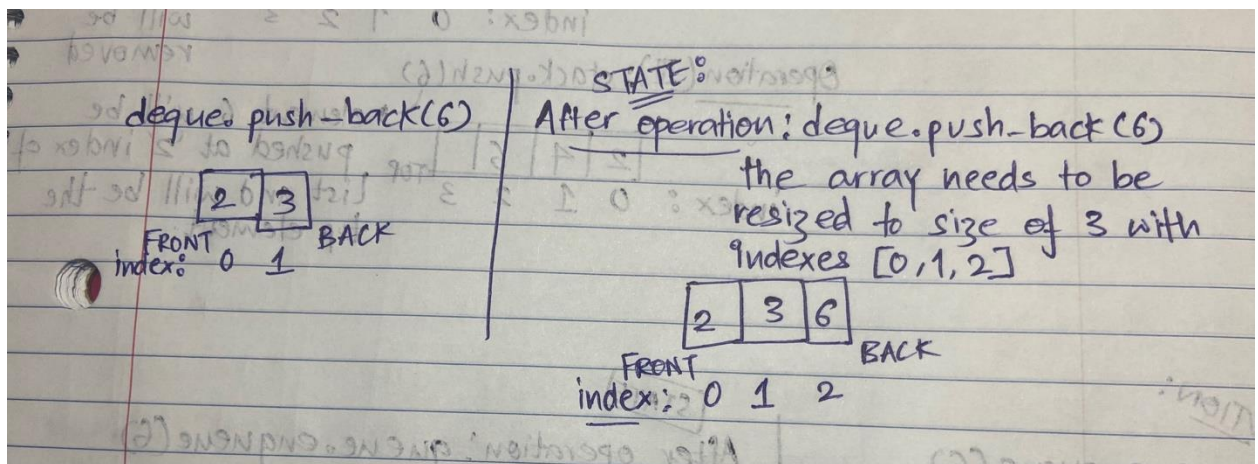 deque. push-back(6)
2 3
FRONT BACK
index: 0 1
STATE:
After operation: deque.push-back(6)
the array needs to be
resized to size of 3 with
indexes [0,1,2]
2 3 6
FRONT BACK
index: 0 1 2